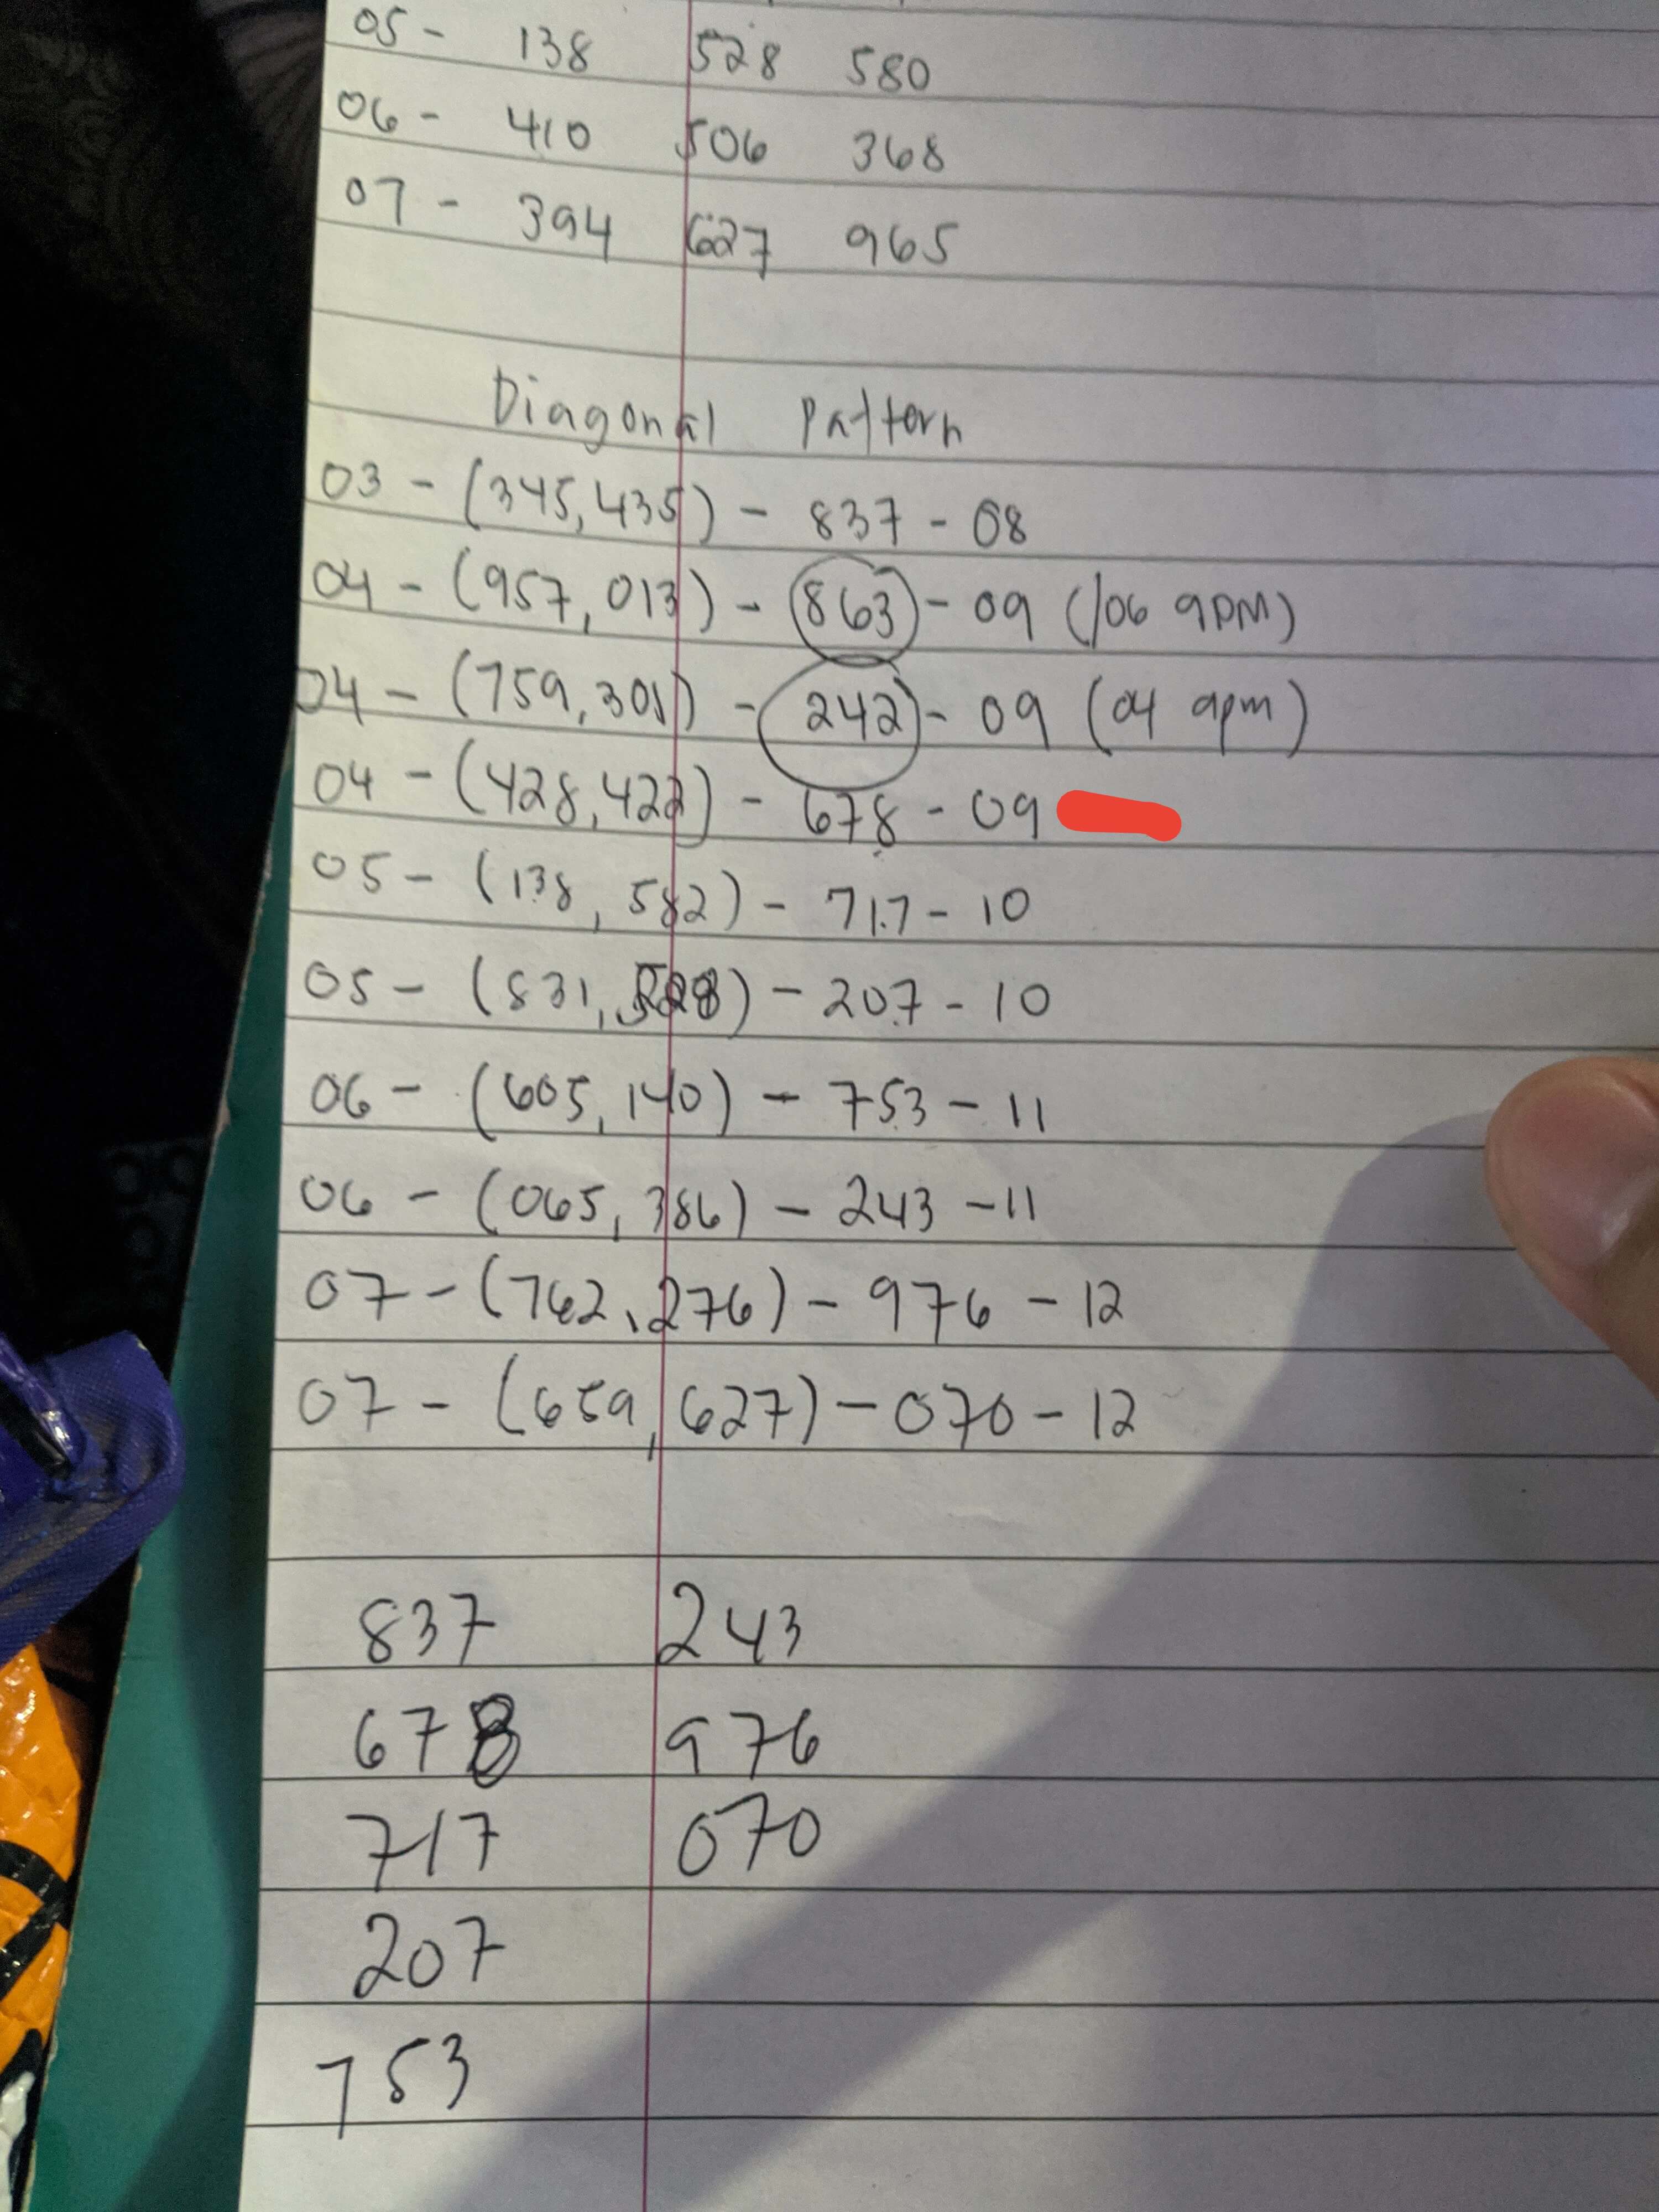 05 - 138 528 580
06 - 410 506 368
07 - 394 627 965
Diagonal Pattern
03 - (345, 435) - 837 - 08
04 - (957, 013) - 863 - 09 (/06 9PM)
04 - (759, 301) - 242 - 09 (04 9pm)
04 - (428, 422) - 678 - 09
05 - (138, 582) - 717 - 10
05 - (831, 528) - 207 - 10
06 - (605, 140) - 753 - 11
06 - (065, 386) - 243 - 11
07 - (762, 276) - 976 - 12
07 - (659, 627) - 070 - 12
837 243
678 976
717 070
207
753